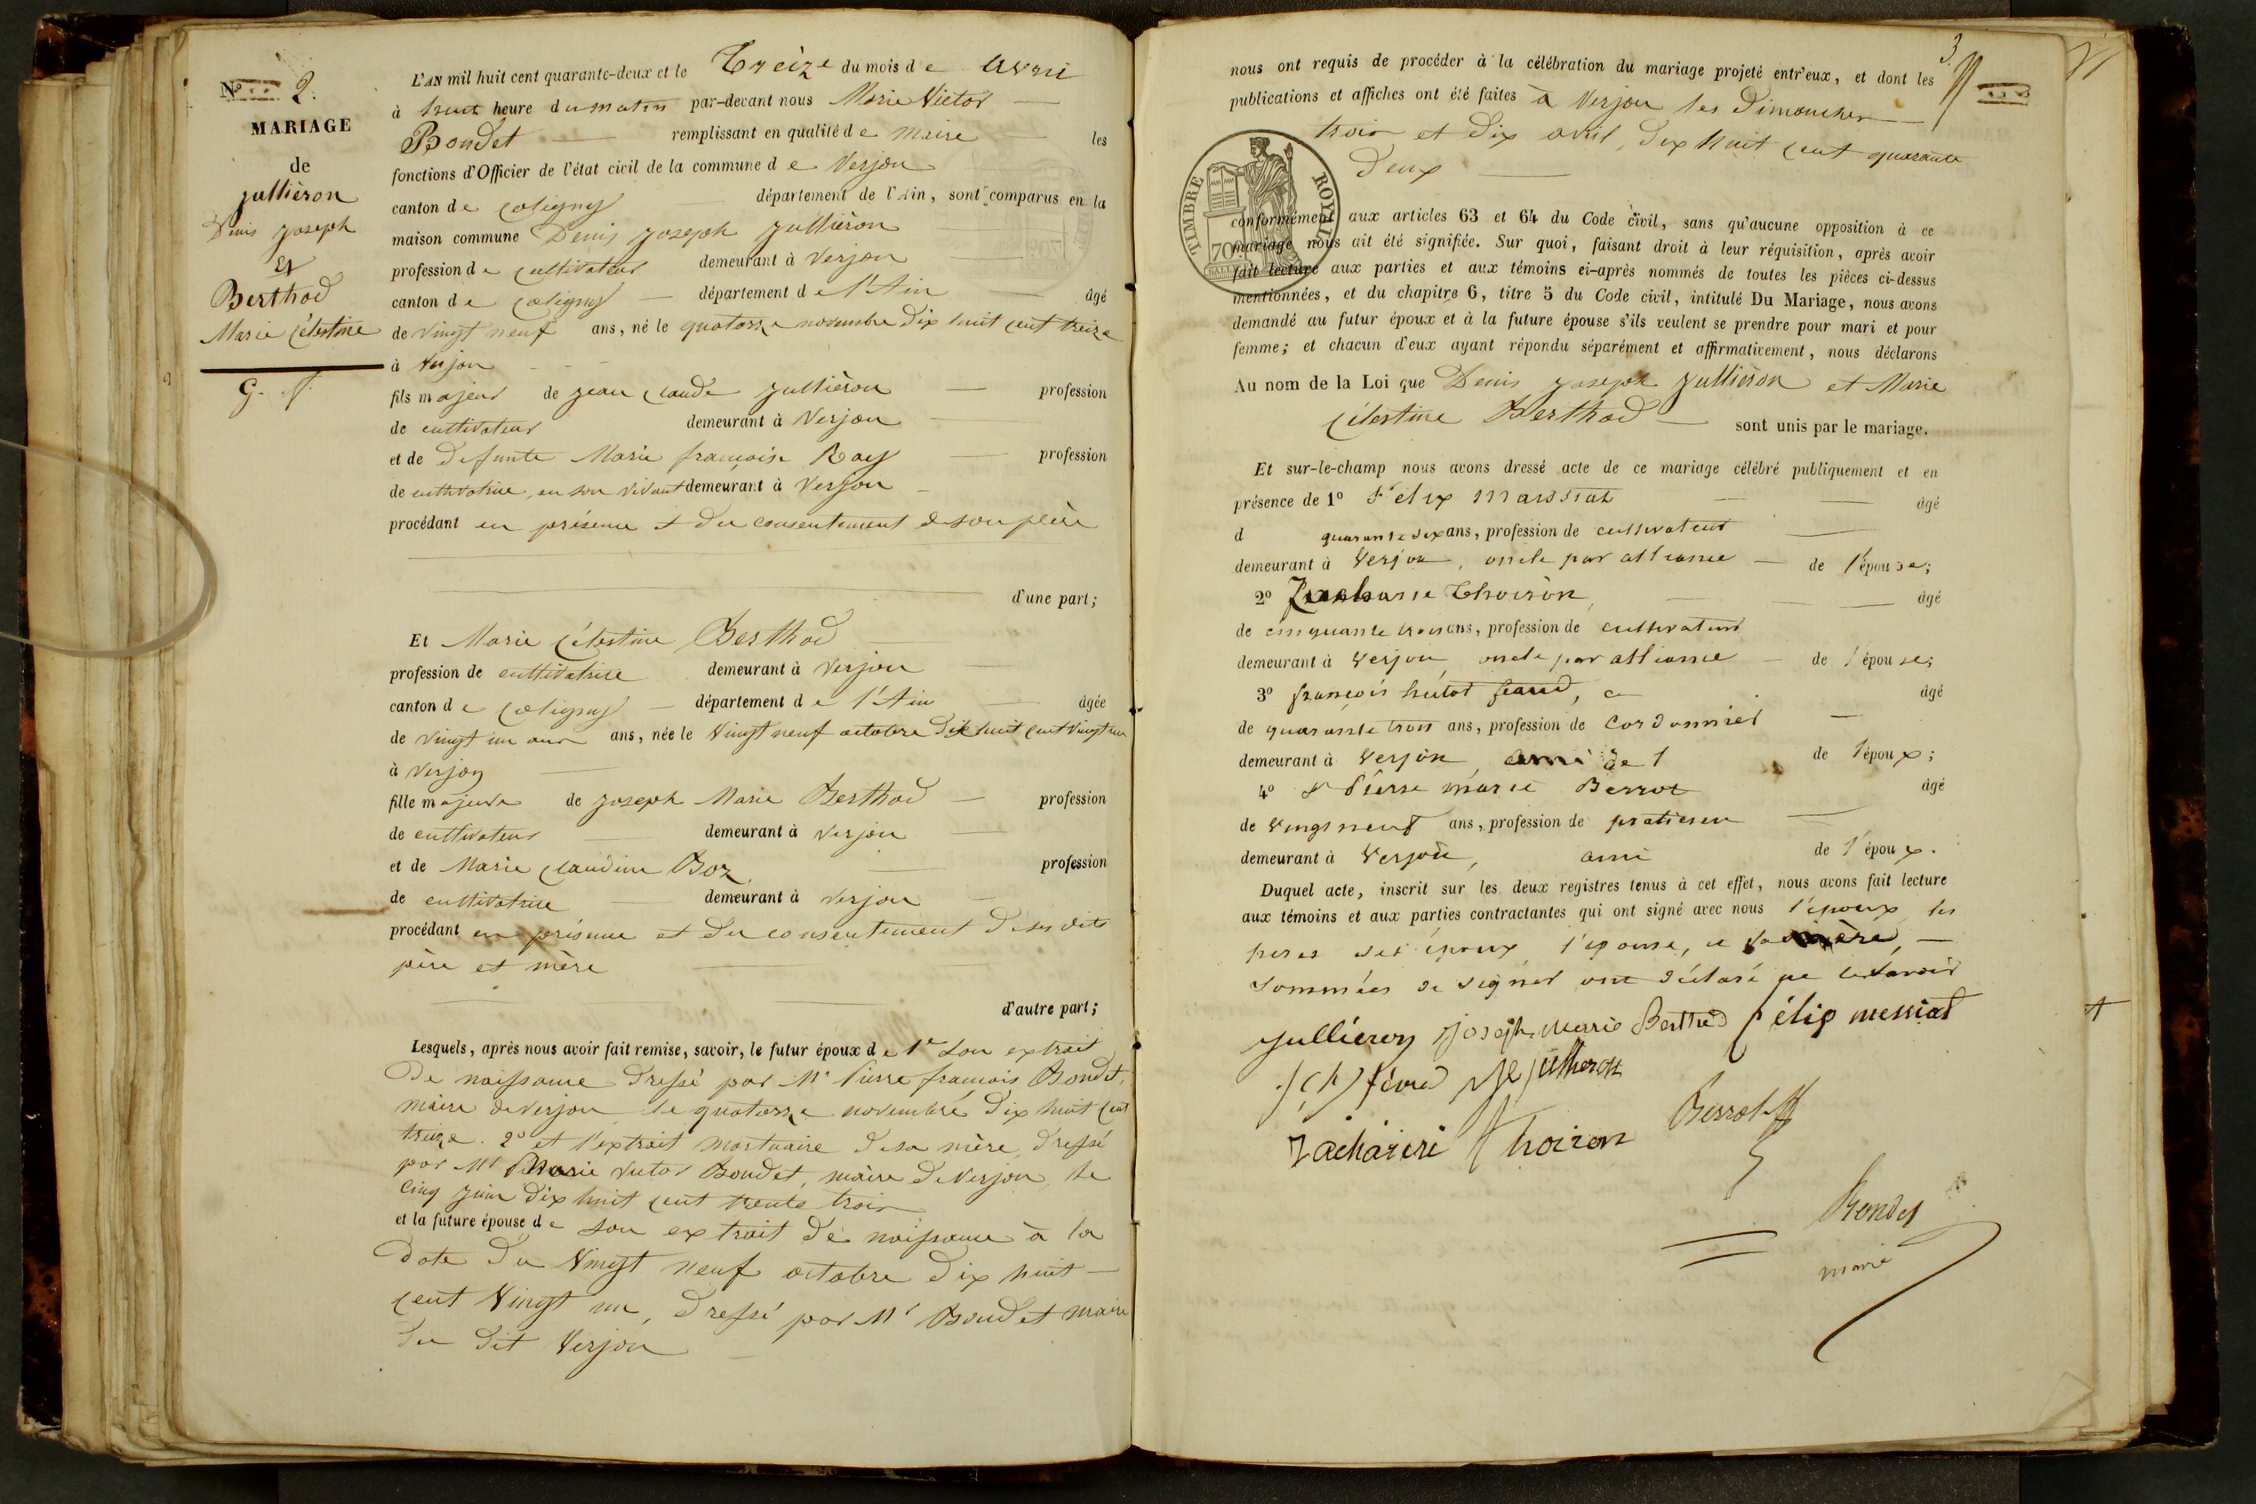 N° 2.
MARIAGE
de
Jullièron
Denis Joseph
Et
Berthod
Marie Célestine
L'AN mil huit cent quarante-deux et le Treize du mois de Avril
à huit heure du matin par-devant nous Marie Victor
Bondet remplissant en qualité de maire les
fonctions d'Officier de l'état civil de la commune de Verjon
canton de Coligny département de l'Ain, sont comparus en la
maison commune Denis Joseph Jullièron
profession de cultivateur demeurant à Verjon
canton de Coligny département de l'Ain âgé
de vingt neuf ans, né le quatorze novembre dix huit cent treize
à Verjon
fils majeur de Jean Claude Jullièron profession
de cultivateur demeurant à Verjon
et de defunte Marie françoise Roy profession
de cultivatrice, en son vivant demeurant à Verjon
procédant en présence et du consentement de son père
d'une part;
Et Marie Célestine Berthod
profession de cultivatrice demeurant à Verjon
canton de Coligny département de l'Ain âgée
de vingt un ans ans, née le Vingt neuf octobre dix huit cent vingt un
à Verjon
fille majeure de Joseph Marie Berthod profession
de cultivateur demeurant à Verjon
et de Marie Claudine Boz profession
de cultivatrice demeurant à Verjon
procédant en présence et du consentement de ses dits
père et mère
d'autre part;
Lesquels, après nous avoir fait remise, savoir, le futur époux de 1° son extrait
De naissance dressé par Mr Pierre françois Bondet,
maire de Verjon le quatorze novembre dix huit cent
treize. 2° et l'extrait mortuaire de sa mère, dressé
par Mr Marie Victor Bondet, maire de Verjon, le
cinq juin dix huit cent trente trois
et la future épouse de son extrait de naissance à la
date du Vingt neuf octobre dix huit
cent Vingt un, dressé par Mr Bondet maire
du dit Verjon
3
nous ont requis de procéder à la célébration du mariage projeté entr'eux, et dont les
publications et affiches ont été faites à Verjon les Dimanches
trois et dix avril, dix huit cent quarante
deux
TIMBRE ROYAL
70
conformément aux articles 63 et 64 du Code civil, sans qu'aucune opposition à ce
mariage nous ait été signifiée. Sur quoi, faisant droit à leur réquisition, après avoir
fait lecture aux parties et aux témoins ci-après nommés de toutes les pièces ci-dessus
mentionnées, et du chapitre 6, titre 5 du Code civil, intitulé Du Mariage, nous avons
demandé au futur époux et à la future épouse s'ils veulent se prendre pour mari et pour
femme; et chacun d'eux ayant répondu séparément et affirmativement, nous déclarons
Au nom de la Loi que Denis Joseph Jullièron et Marie
Célestine Berthod sont unis par le mariage.
Et sur-le-champ nous avons dressé acte de ce mariage célébré publiquement et en
présence de 1° Félix Massiat âgé
d quarante six ans, profession de cultivateur
demeurant à Verjon, oncle par alliance de l'épouse;
2° Zacharie Thoiron, âgé
de cinquante trois ans, profession de cultivateur
demeurant à Verjon oncle par alliance de l'épouse;
3° françois hulot âgé
de quarante trois ans, profession de cordonnier
demeurant à Verjon, ami de l de l'époux;
4° Pierre marie Berrot âgé
de Vingt neuf ans, profession de praticien
demeurant à Verjon, ami de l'époux.
Duquel acte, inscrit sur les deux registres tenus à cet effet, nous avons fait lecture
aux témoins et aux parties contractantes qui ont signé avec nous l'époux, les
peres des époux l'épouse, et sa mère,
sommées de signer ont déclaré ne le savoir
Julliéron Joseph Marie Berthod félix messiat
févre
Zacharie Thoiron Berrot
Bondet
maire